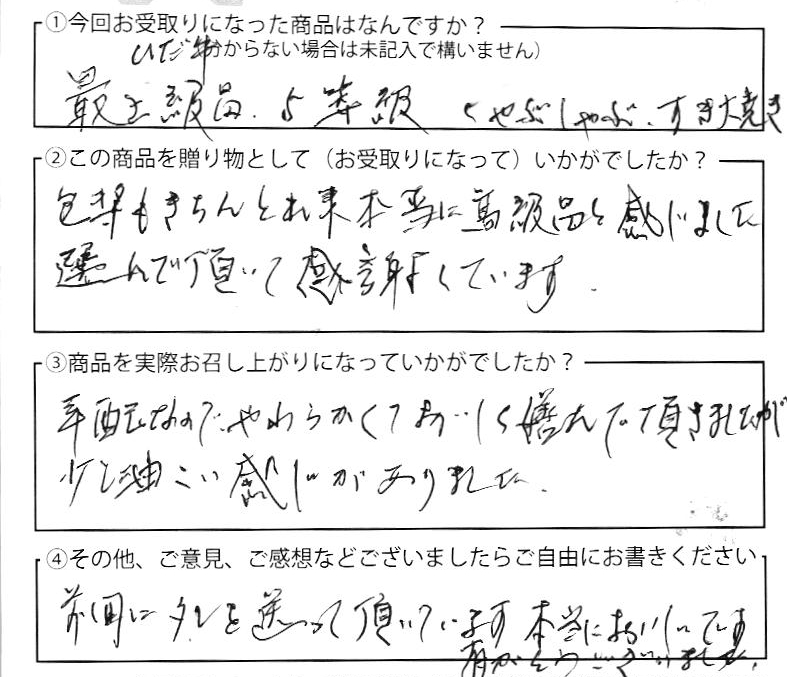 ①今回お受取りになった商品はなんですか？
ひだ牛
分からない場合は未記入で構いません）
最上級品、5等級 しゃぶしゃぶ、すき焼き
②この商品を贈り物として（お受取りになって）いかがでしたか？
包装もきちんとされ本当に高級品と感じました
選んで頂いて感謝しています。
③商品を実際お召し上がりになっていかがでしたか？
年配なので、やわらかくておいしく喜んで頂きましたが
少し油こい感じがありました。
④その他、ご意見、ご感想などございましたらご自由にお書きください
前回にタレを送って頂いています 本当においしいです
有がとうございました。